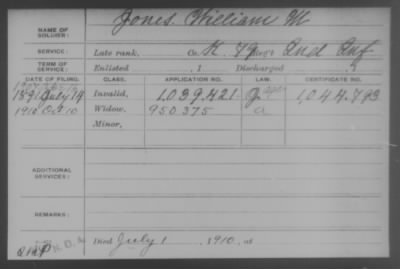 NAME OF SOLDIER: Jones William M
SERVICE: Late rank, Co. K. 79 Reg't Ind Inf
TERM OF SERVICE: Enlisted , 1 Discharged , 1
DATE OF FILING. CLASS. APPLICATION NO. LAW. CERTIFICATE NO.
1891 July 14 Invalid, 1,039,421 1,044,793
1910 Oct 10 Widow, 950.375 a
Minor,
ADDITIONAL SERVICES:
REMARKS:
Died July 1 1910, at